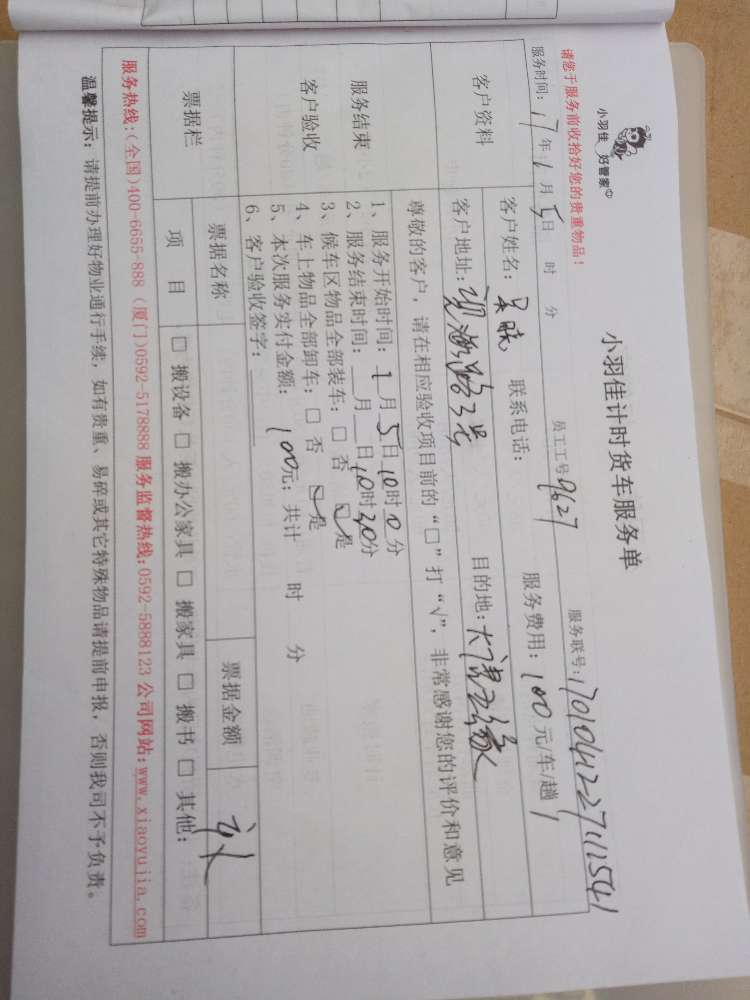 小羽佳 好管家©
小羽佳计时货车服务单
请您于服务前收拾好您的贵重物品!
服务联号:170104122711541
服务时间:17年1月5日 时 分 员工工号9627 服务费用:100元/车/趟
客户资料
客户姓名: 联系电话:
客户地址:观海路3号 目的地:大唐五缘
尊敬的客户,请在相应验收项目前的“□”打“√”,非常感谢您的评价和意见
服务结束
客户验收
1、服务开始时间:1月5日10时0分
2、服务结束时间:__月__日10时30分
3、候车区物品全部装车:□ 否 ☑是
4、车上物品全部卸车:□ 否 ☑是
5、本次服务实付金额:100元;共计 时 分
6、客户验收签字:
票据栏
票据名称 票据金额
项 目 □ 搬设备 □ 搬办公家具 □ 搬家具 □ 搬书 □ 其他:
服务热线:(全国)400-6655-888 (厦门)0592-5178888 服务监督热线:0592-5888123 公司网站:www.xiaoyujia.com
温馨提示:请提前办理好物业通行手续,如有贵重、易碎或其它特殊物品请提前申报,否则我司不予负责。